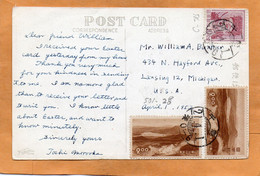 POST CARD
CORRESPONDENCE
ADDRESS
Dear friend William
I received your Easter
card yesterday from my home
Thank you very much
for your kindness in sending
to me. I am no more glad
than receive your letter and
visit you. I know little
about Easter, and want to
know minutely.
Sincerely yours
Mr. William A.
439 N. Hayford Ave.,
Lansing 12, Michigan
U.S.A.
April 1,
8.00